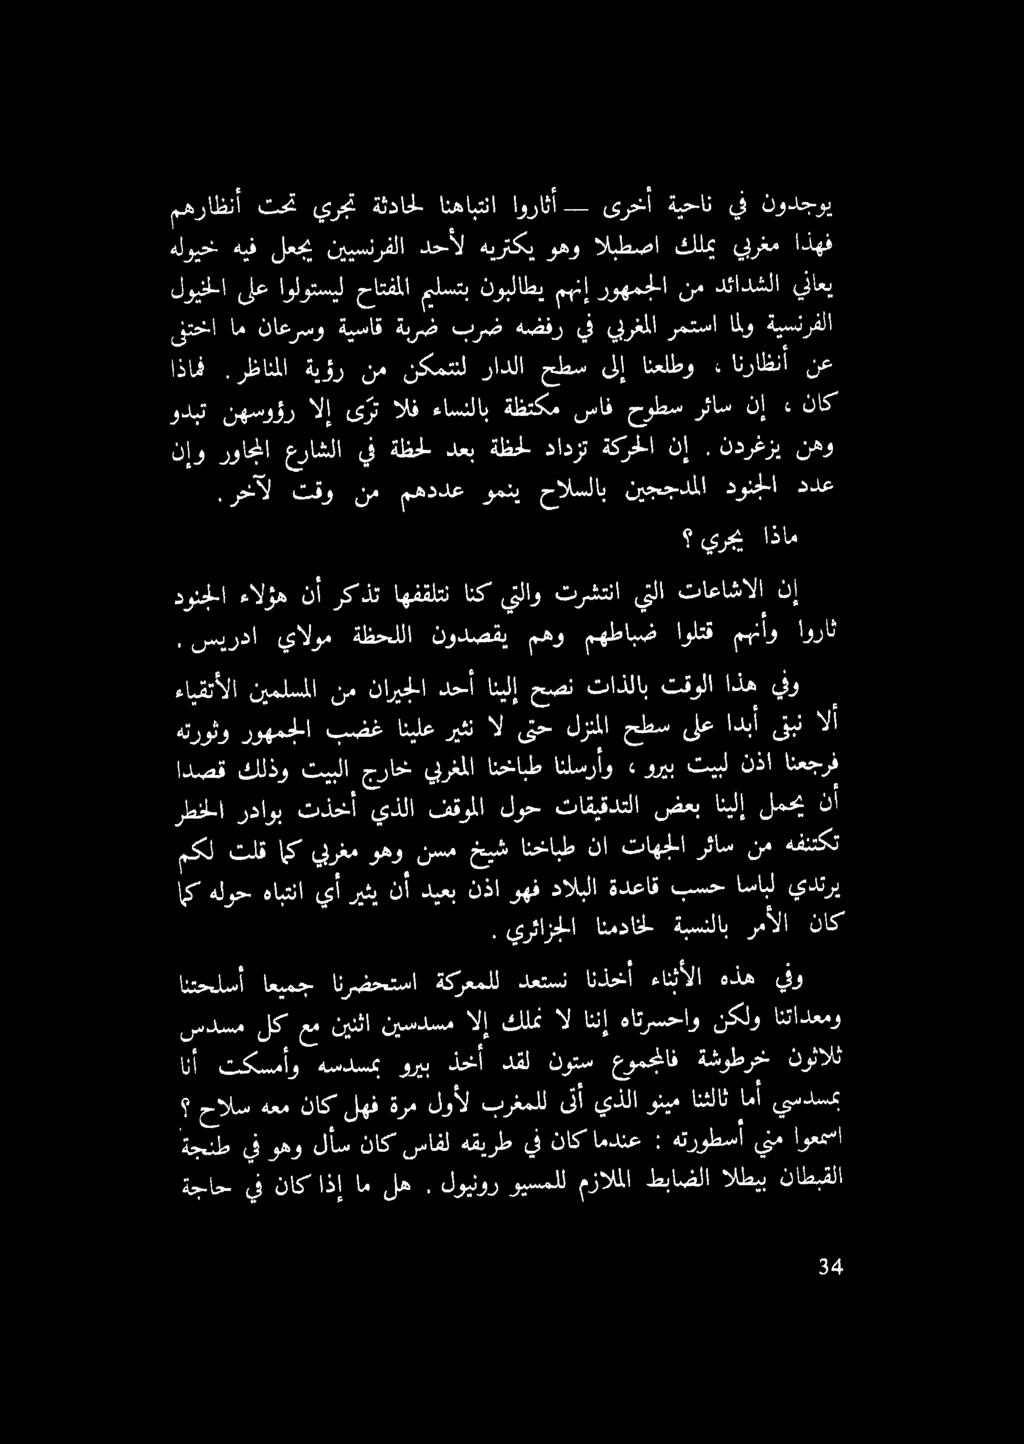 يوجدون في ناحية أخرى — أثاروا انتباهنا لحادثة تجري تحت أنظارهم
فهذا مغربي يملك اصطبلا وهو يكتريه لأحد الفرنسيين يجعل فيه خيوله
يعاني الشدائد من الجمهور إنهم يطالبون بتسليم المفتاح ليستولوا على الخيول
الفرنسية ولما استمر المغربي في رفضه ضرب ضربة قاسية وسرعان ما اختفى
عن أنظارنا ، وطلعنا إلى سطح الدار لنتمكن من رؤية المناظر . فماذا
كان ، إن سائر سطوح فاس مكتظة بالنساء فلا ترَى إلا رؤوسهن تبدو
وهن يزغردن . إن الحركة تزداد لحظة بعد لحظة في الشارع المجاور وإن
عدد الجنود المدججين بالسلاح ينمو عددهم من وقت لآخر .
ماذا يجري ؟
إن الاشاعات التي انتشرت والتي كنا نتلقفها تذكر أن هؤلاء الجنود
ثاروا وأنهم قتلوا ضباطهم وهم يقصدون اللحظة مولاي ادريس .
وفي هذا الوقت بالذات نصح إلينا أحد الجيران من المسلمين الأتقياء
ألا نبقى أبدا على سطح المنزل حتى لا نثير علينا غضب الجمهور وثورته
فرجعنا اذن لبيت بيرو ، وأرسلنا طباخنا المغربي خارج البيت وذلك قصدا
أن يحمل إلينا بعض التدقيقات حول الموقف الذي أخذت بوادر الخطر
تكتنفه من سائر الجهات ان طباخنا شيخ مسن وهو مغربي كما قلت لكم
يرتدي لباسا حسب قاعدة البلاد فهو اذن بعيد أن يثير أي انتباه حوله كما
كان الأمر بالنسبة لخادمنا الجزائري .
وفي هذه الأثناء أخذنا نستعد للمعركة استحضرنا جميعا أسلحتنا
ومعداتنا ولكن واحسرتاه إننا لا نملك إلا مسدسين اثنين مع كل مسدس
ثلاثون خرطوشة فالمجموع ستون لقد أخذ بيرو بمسدسه وأمسكت أنا
بمسدسي أما ثالثنا مينو الذي أتى للمغرب لأول مرة فهل كان معه سلاح ؟
اسمعوا مني أسطورته : عندما كان في طريقه لفاس كان سأل وهو في طنجة
القبطان بيطلا الضابط الملازم للمسيو رونيول . هل ما إذا كان في حاجة
34